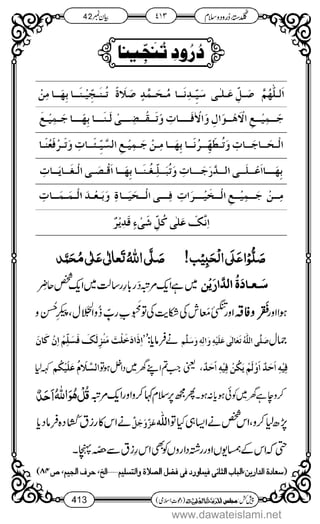 گلدستۂ درود و سلام ۴۱۳ بیان نمبر 42
دُرُودِ تُنَجِّیْنَا
اَللّٰھُمَّ صَلِّ عَلٰی سَیِّدِنَا مُحَمَّدٍ صَلَاۃً تُنَجِّیْنَا بِھَا مِنْ
جَمِیْعِ الْاَھْوَالِ وَالْاٰفَاتِ وَتَقْضِیْ لَنَا بِھَا جَمِیْعَ
الْحَاجَاتِ وَتُطَھِّرُنَا بِھَا مِنْ جَمِیْعِ السَّیِّئَاتِ وَتَرْفَعُنَا
بِھَا اَعْلَی الدَّرَجَاتِ وَتُبَلِّغُنَا بِھَا اَقْصَی الْغَایَاتِ
مِنْ جَمِیْعِ الْخَیْرَاتِ فِی الْحَیَاۃِ وَبَعْدَ الْمَمَاتِ
اِنَّکَ عَلٰی کُلِّ شَیْءٍ قَدِیْرٌ
صَلُّوْا عَلَی الْحَبِیْب! صَلَّی اللّٰہُ تَعَالٰی عَلٰی مُحَمَّد
سَعَادَۃُ الدَّارَیْن میں ہے ایک مرتبہ دربارِ رسالت میں ایک شخص حاضر
ہوا اور فقر و فاقہ اور تنگیِ معاش کی شکایت کی تو محبوبِ ربِّ ذُوالْجَلال، پیکرِ حسن و
جمال صَلَّی اللّٰہُ تَعَالٰی عَلَیْہِ وَاٰلِہٖ وَسَلَّم نے فرمایا: ”اِذَا دَخَلْتَ مَنْزِلَکَ فَسَلِّمْ اِنْ کَانَ
فِیْہِ اَحَدٌ اَوْ لَمْ یَکُنْ فِیْہِ اَحَدٌ، یعنی جب تم اپنے گھر میں داخل ہو تو اَلسَّلَامُ عَلَیْکُمْ کہہ لیا
کرو چاہے گھر میں کوئی ہو یا نہ ہو۔ پھر مجھ پر سلام کہا کرو اور ایک مرتبہ قُلْ ھُوَ اللّٰہُ اَحَدٌ
پڑھ لیا کرو، اس شخص نے ایسا ہی کیا تو اللّٰہ عَزَّوَجَلَّ نے اس کا رزق کشادہ فرما دیا
حتّٰی کہ اس کے ہمسایوں اور رشتہ داروں کو بھی اس رزق سے حصہ پہنچا۔
(سعادۃ الدارین، الباب الثانی فیما ورد فی فضل الصلاۃ والتسلیم ۔۔۔الخ، حرف الجیم، ص ۸۳)
413 پیش کش: مجلس المدینۃ العلمیۃ (دعوتِ اسلامی)
www.dawateislami.net